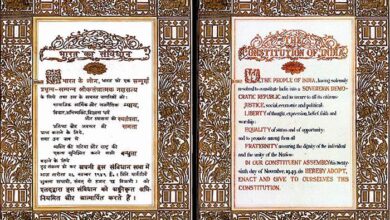 भारत का संविधान
हम, भारत के लोग, भारत को एक सम्पूर्ण
प्रभुत्व-सम्पन्न लोकतंत्रात्मक गणराज्य
बनाने के लिये तथा उस के समस्त नागरिकों को
सामाजिक आर्थिक और राजनैतिक न्याय,
विचार, अभिव्यक्ति, विश्वास, धर्म
और उपासना की स्वतंत्रता,
प्रतिष्ठा और अवसर की समता
प्राप्त कराने के लिये,
तथा उन सब में
व्यक्ति की गरिमा और राष्ट्र की
एकता सुनिश्चित करने वाली बन्धुता
बढ़ाने के लिये
दृढ़ संकल्प हो कर अपनी इस संविधान सभा में
एतद्द्वारा इस संविधान को अङ्गीकृत, अधि-
नियमित और आत्मार्पित करते हैं
CONSTITUTION OF INDIA
WE, THE PEOPLE OF INDIA, having solemnly
resolved to constitute India into a SOVEREIGN DEMO-
CRATIC REPUBLIC and to secure to all its citizens:
JUSTICE, social, economic and political;
LIBERTY of thought, expression, belief, faith and
worship;
EQUALITY of status and of opportunity;
and to promote among them all
FRATERNITY assuring the dignity of the individual
and the unity of the Nation;
IN OUR CONSTITUENT ASSEMBLY this twenty-
sixth day of November, 1949, do HEREBY ADOPT,
ENACT AND GIVE TO OURSELVES THIS
CONSTITUTION.